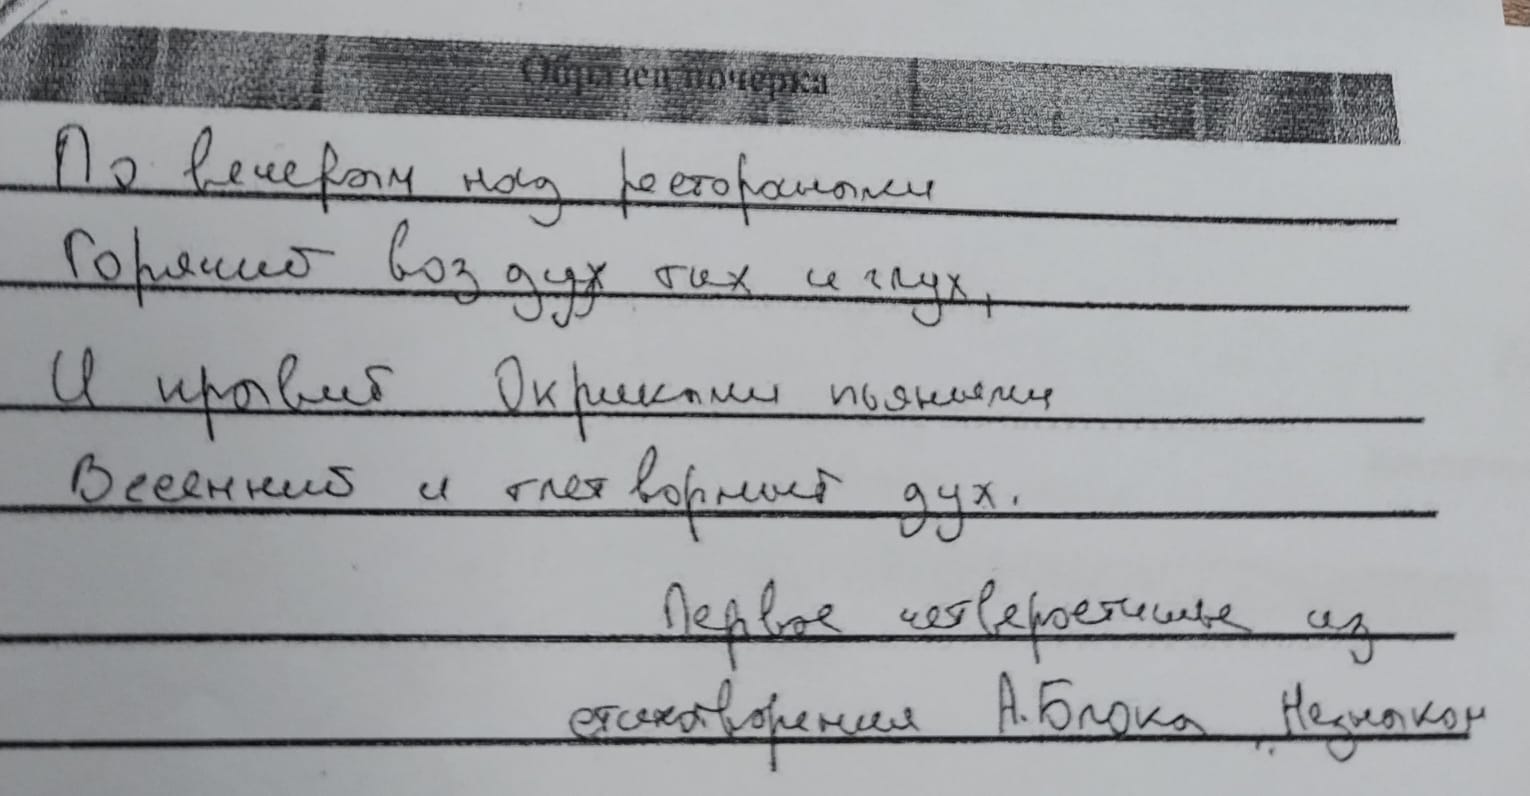 Образец почерка
По вечерам над ресторанами
Горячий воздух тих и глух,
И правит Окриками пьяными
Весенний и тлетворный дух.
Первое четверостишье из
стихотворения А.Блока „Незнаком